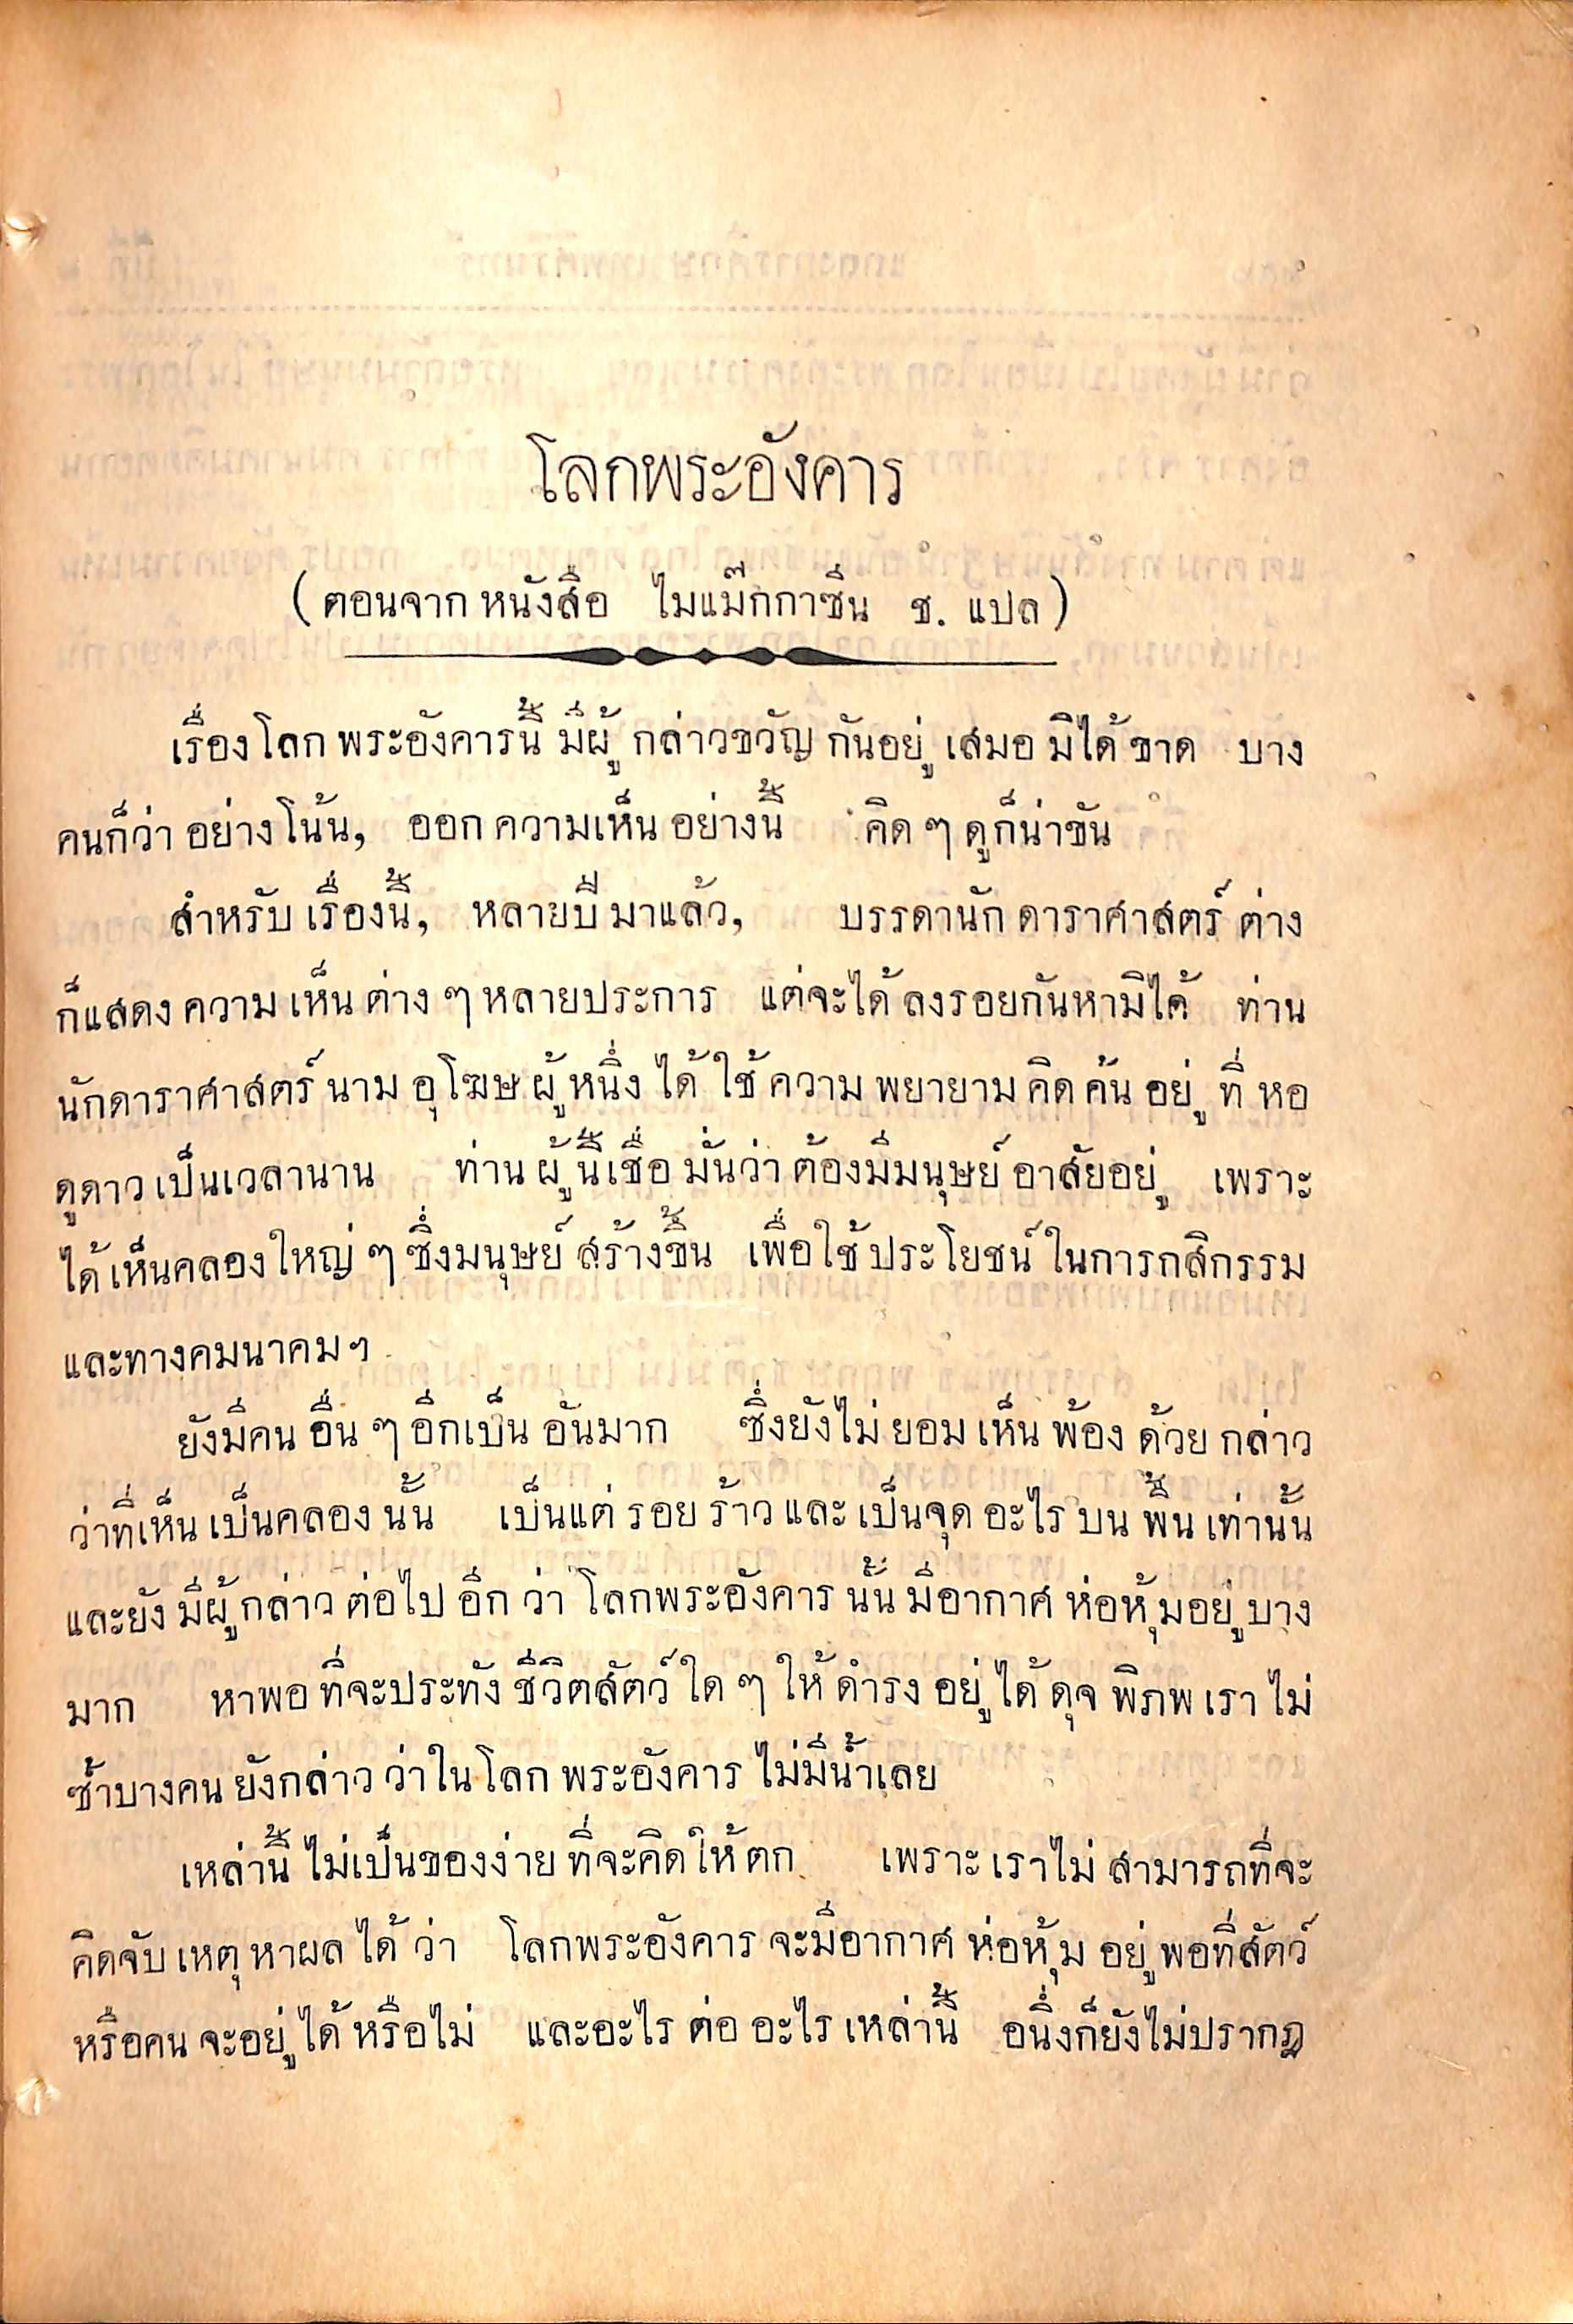 โลกพระอังคาร
(ตอนจากหนังสือ ไมแม๊กกาซีน ช. แปล)
เรื่องโลกพระอังคารนี้ มีผู้กล่าวขวัญกันอยู่เสมอมิได้ขาด บาง
คนก็ว่าอย่างโน้น, ออกความเห็นอย่างนี้ คิด ๆ ดูก็น่าขัน
สำหรับเรื่องนี้, หลายปีมาแล้ว, บรรดานักดาราศาสตร์ต่าง
ก็แสดงความเห็นต่าง ๆ หลายประการ แต่จะได้ลงรอยกันหามิได้ ท่าน
นักดาราศาสตร์นามอุโฆษผู้หนึ่งได้ใช้ความพยายามคิดค้นอยู่ที่หอ
ดูดาวเป็นเวลานาน ท่านผู้นี้เชื่อมั่นว่าต้องมีมนุษย์อาสัยอยู่ เพราะ
ได้เห็นคลองใหญ่ ๆ ซึ่งมนุษย์สร้างขึ้น เพื่อใช้ประโยชน์ในการกสิกรรม
และทางคมนาคมฯ
ยังมีคนอื่น ๆ อีกเป็นอันมาก ซึ่งยังไม่ยอมเห็นพ้องด้วยกล่าว
ว่าที่เห็นเป็นคลองนั้น เป็นแต่รอยร้าวและเป็นจุดอะไรบนพื้นเท่านั้น
และยังมีผู้กล่าวต่อไปอีกว่า โลกพระอังคารนั้นมีอากาศห่อหุ้มอยู่บาง
มาก หาพอที่จะประทังชีวิตสัตว์ใด ๆ ให้ดำรงอยู่ได้ดุจพิภพเราไม่
ซ้ำบางคนยังกล่าวว่าในโลกพระอังคารไม่มีน้ำเลย
เหล่านี้ไม่เป็นของง่ายที่จะคิดให้ตก เพราะเราไม่สามารถที่จะ
คิดจับเหตุหาผลได้ว่า โลกพระอังคารจะมีอากาศห่อหุ้มอยู่พอที่สัตว์
หรือคนจะอยู่ได้หรือไม่ และอะไรต่ออะไรเหล่านี้ อนึ่งก็ยังไม่ปรากฎ